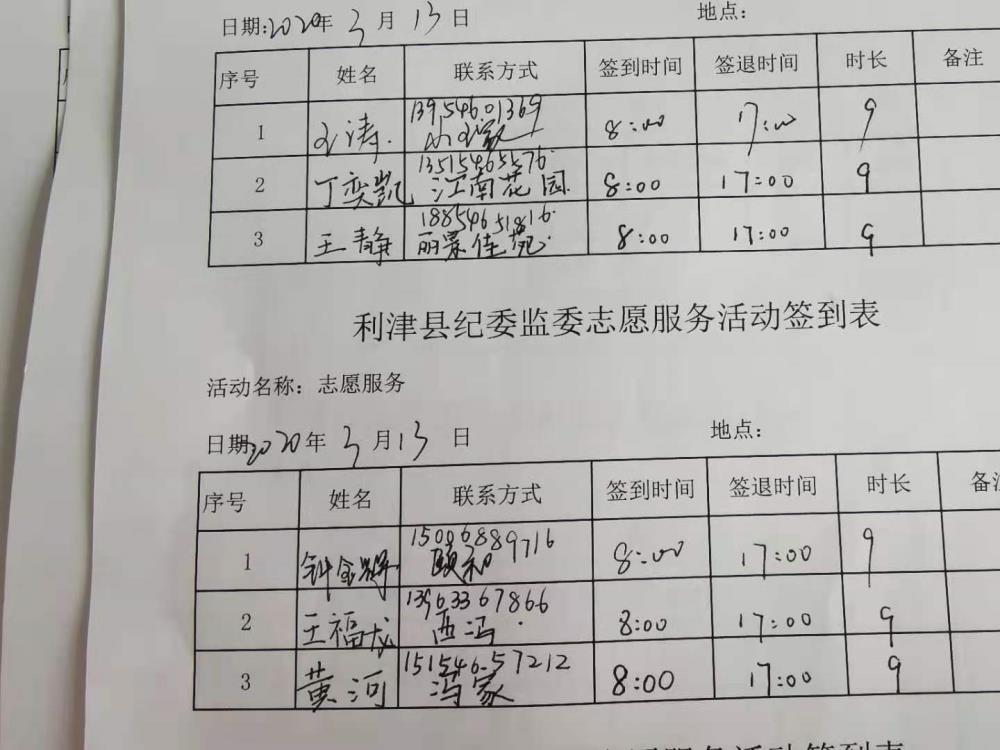 日期:2020年 3 月 13 日 地点：
序号 姓名 联系方式 签到时间 签退时间 时长 备注
1 王涛 13954601369 8:00 17:00 9
2 丁奕凯 13515465576 江南花园 8:00 17:00 9
3 王静 18854651816 丽景佳苑 8:00 17:00 9
利津县纪委监委志愿服务活动签到表
活动名称：志愿服务
日期2020年 3 月 13 日 地点：
序号 姓名 联系方式 签到时间 签退时间 时长 备注
1 钟金辉 15006889716 颐和 8:00 17:00 9
2 王福成 13963367866 西冯 8:00 17:00 9
3 黄河 15154657212 冯家 8:00 17:00 9
愿服务活动签到表